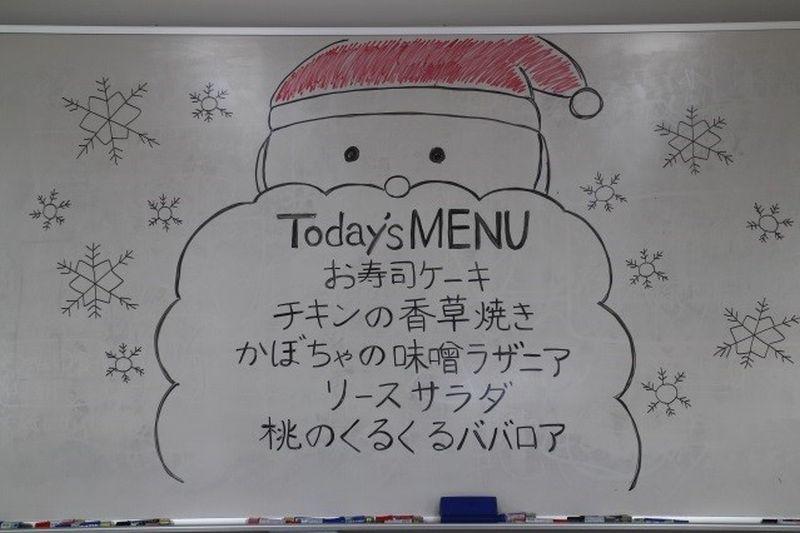 Today's MENU
お寿司ケーキ
チキンの香草焼き
かぼちゃの味噌ラザニア
リースサラダ
桃のくるくるババロア